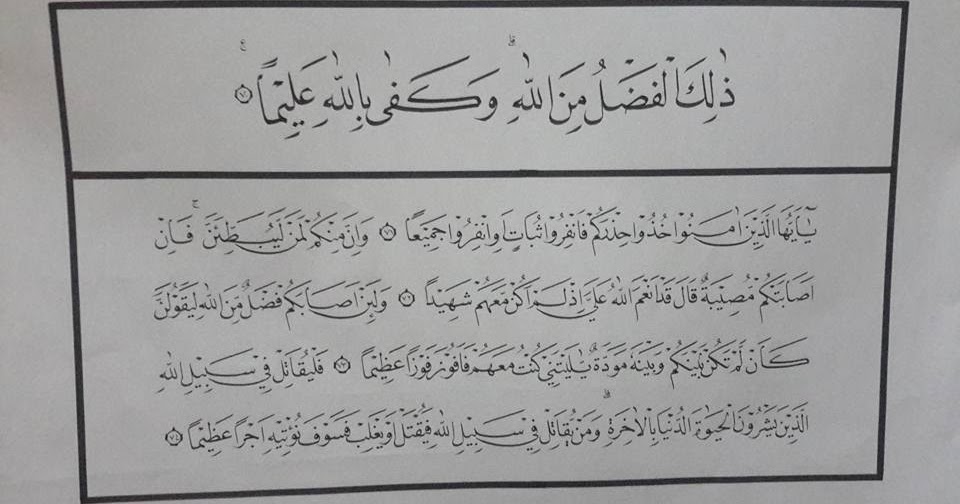 ذٰلِكَ الْفَضْلُ مِنَ اللّٰهِ ۗ وَكَفٰى بِاللّٰهِ عَلِيْمًا ࣖ ٧٠
يٰٓاَيُّهَا الَّذِيْنَ اٰمَنُوْا خُذُوْا حِذْرَكُمْ فَانْفِرُوْا ثُبَاتٍ اَوِ انْفِرُوْا جَمِيْعًا ٧١ وَاِنَّ مِنْكُمْ لَمَنْ لَّيُبَطِّئَنَّ ۚ فَاِنْ
اَصَابَتْكُمْ مُّصِيْبَةٌ قَالَ قَدْ اَنْعَمَ اللّٰهُ عَلَيَّ اِذْ لَمْ اَكُنْ مَّعَهُمْ شَهِيْدًا ٧٢ وَلَئِنْ اَصَابَكُمْ فَضْلٌ مِّنَ اللّٰهِ لَيَقُوْلَنَّ
كَاَنْ لَّمْ تَكُنْ بَيْنَكُمْ وَبَيْنَهٗ مَوَدَّةٌ يّٰلَيْتَنِيْ كُنْتُ مَعَهُمْ فَاَفُوْزَ فَوْزًا عَظِيْمًا ٧٣ فَلْيُقَاتِلْ فِيْ سَبِيْلِ اللّٰهِ
الَّذِيْنَ يَشْرُوْنَ الْحَيٰوةَ الدُّنْيَا بِالْاٰخِرَةِ ۗ وَمَنْ يُّقَاتِلْ فِيْ سَبِيْلِ اللّٰهِ فَيُقْتَلْ اَوْ يَغْلِبْ فَسَوْفَ نُؤْتِيْهِ اَجْرًا عَظِيْمًا ٧٤